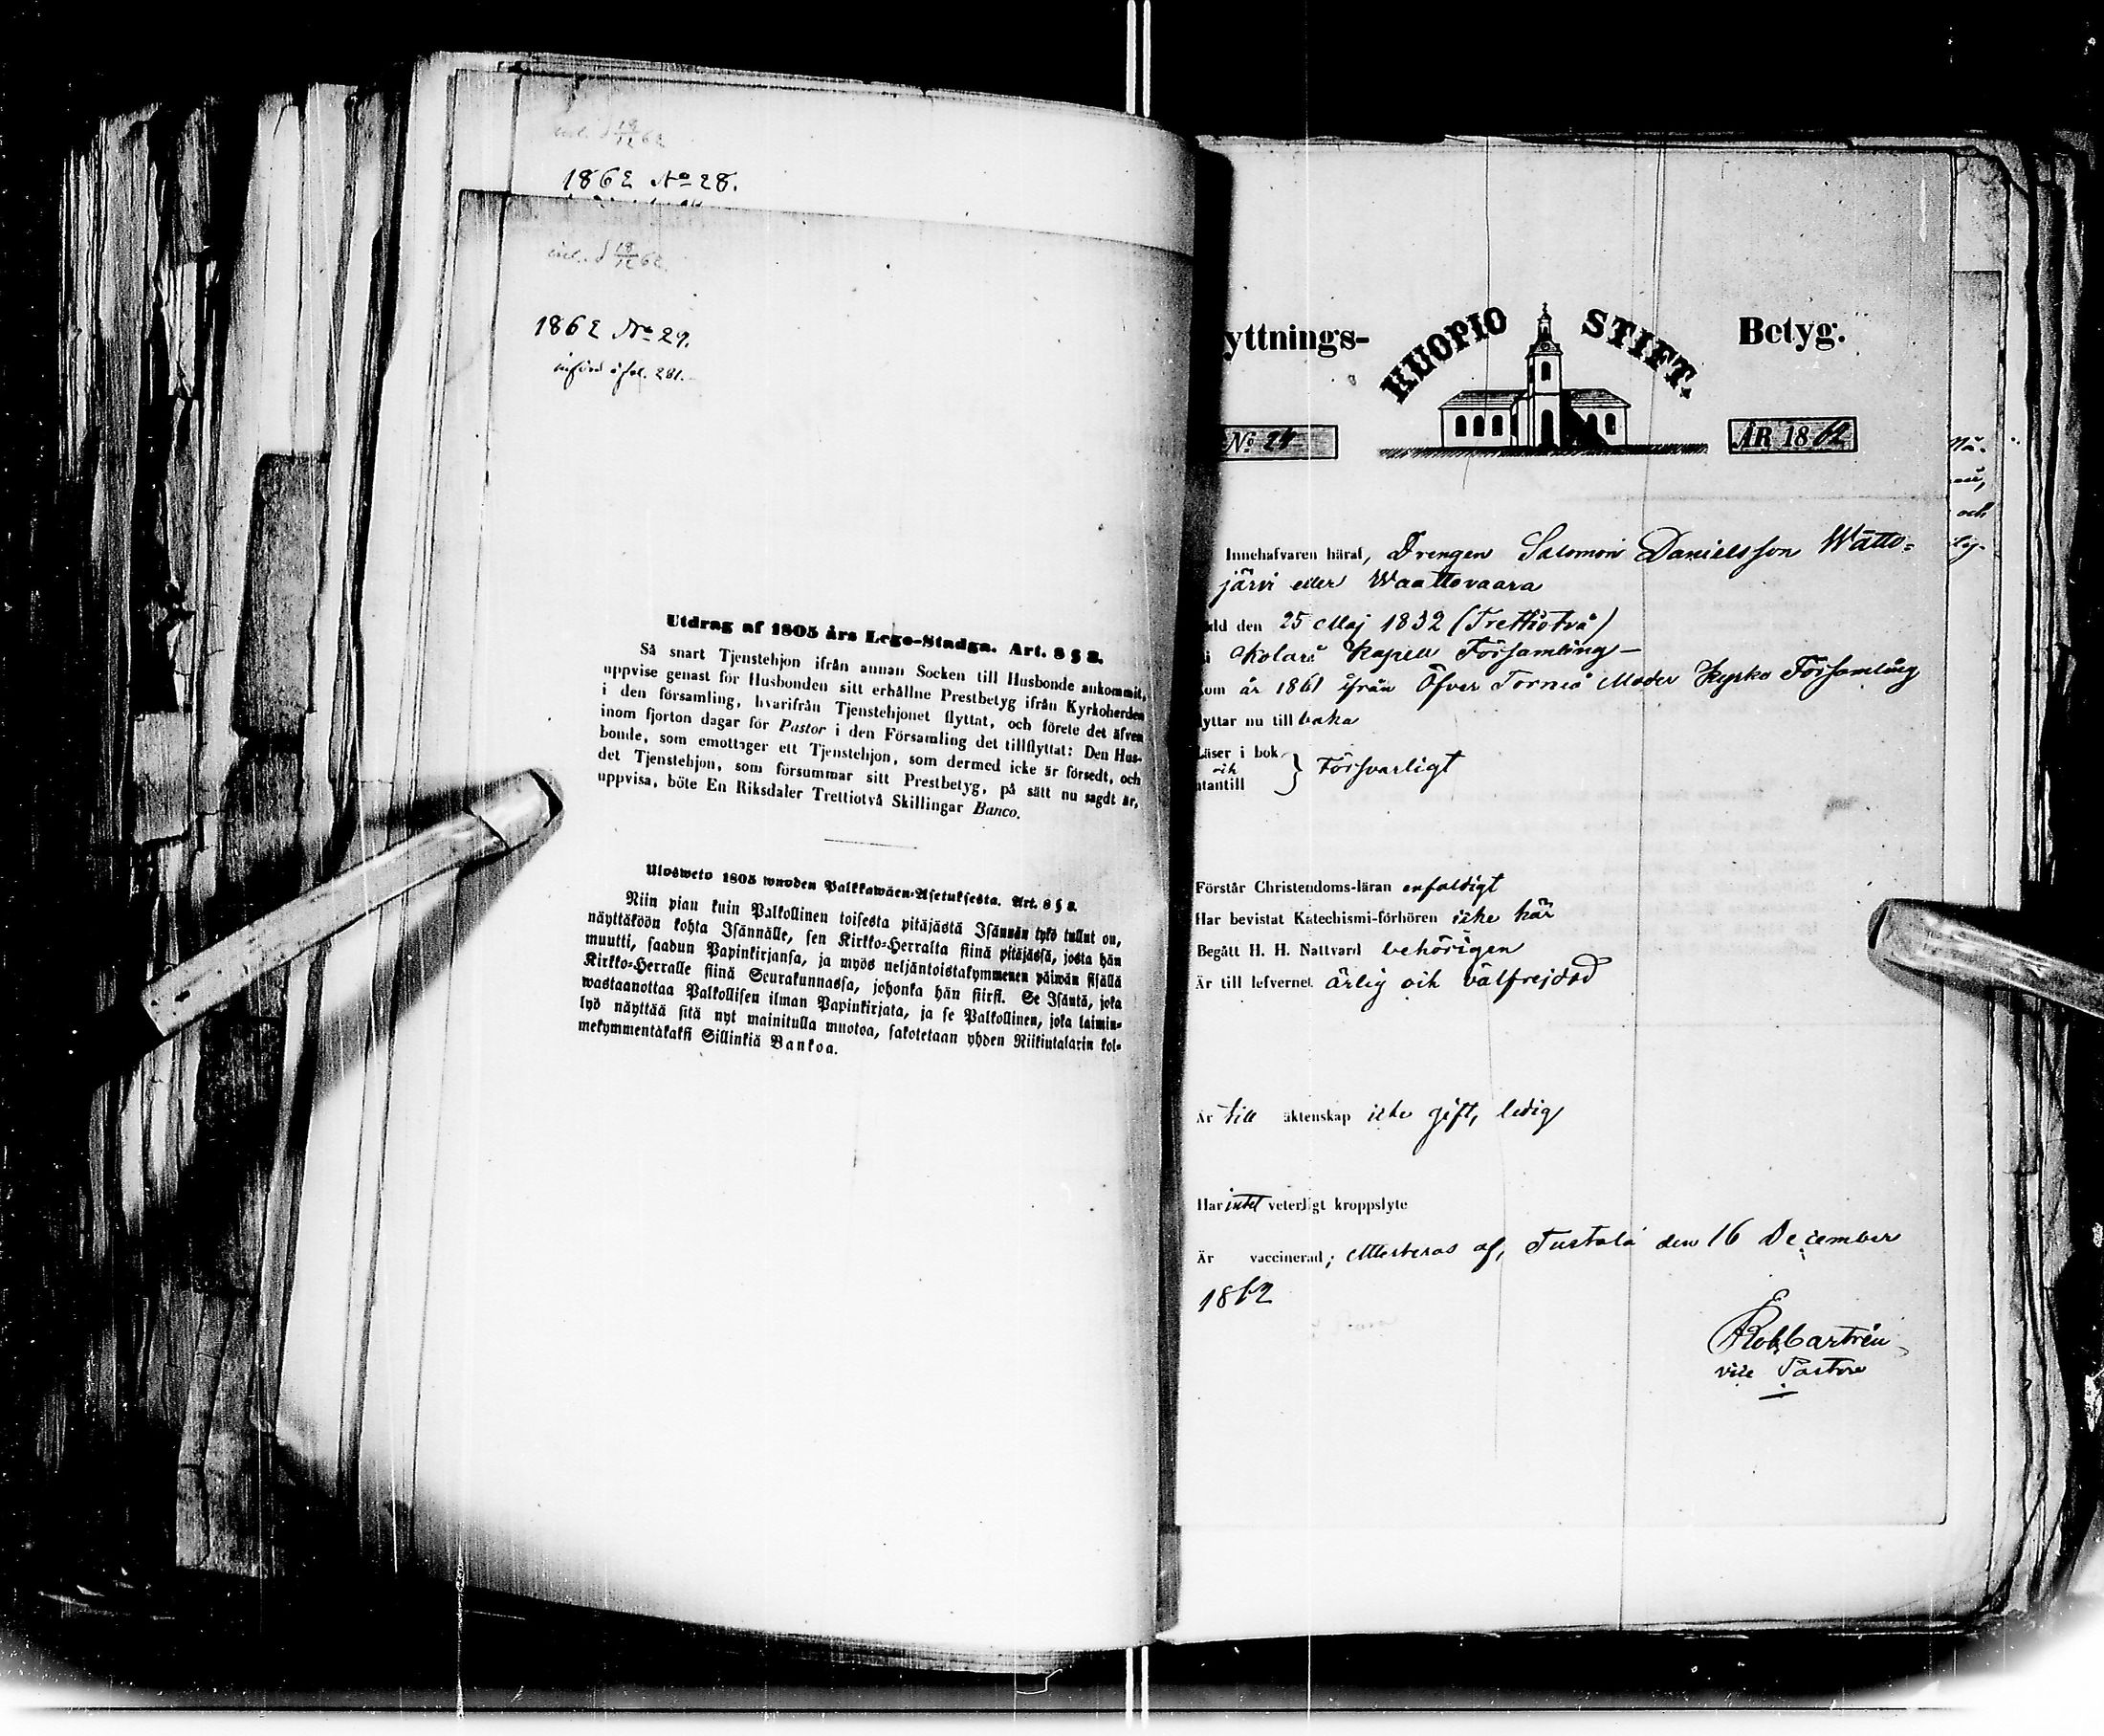 1862 No 28.
1862 No 29.
införd å fol. 281.
Utdrag af 1805 års Lego-Stadga. Art. 8 § 8.
Så snart Tjenstehjon ifrån annan Socken till Husbonde ankommit,
uppvise genast för Husbonden sitt erhållne Prestbetyg ifrån Kyrkoherden
i den församling, hvarifrån Tjenstehjonet flyttat, och förete det äfven
inom fjorton dagar för Pastor i den Församling det tillflyttat: Den Hus-
bonde, som emottager ett Tjenstehjon, som dermed icke är försedt, och
det Tjenstehjon, som försummar sitt Prestbetyg, på sätt nu sagdt är,
uppvisa, böte En Riksdaler Trettiotvå Skillingar Banco.
Ulosweto 1805 wuoden Palkkawäen-Asetuksesta. Art. 8 § 8.
Niin pian kuin Palkollinen toisesta pitäjästä Isännän tykö tullut on,
näyttäköön kohta Isännälle, sen Kirkko-Herralta siinä pitäjässä, josta hän
muutti, saadun Papinkirjansa, ja myös neljäntoistakymmenen päiwän sisällä
Kirkko-Herralle siinä Seurakunnassa, johonka hän siirsi. Se Isäntä, joka
wastaanottaa Palkollisen ilman Papinkirjata, ja se Palkollinen, joka laimin-
lyö näyttää sitä nyt mainitulla muotoa, sakotetaan yhden Riikintalarin kol-
mekymmentäkaksi Sillinkiä Bankoa.
yttnings- KUOPIO STIFT. Betyg.
No ÅR 1862
Innehafvaren häraf, Drengen Salomon Danielsson Wätto=
järvi eller Waattovaara
dd den 25 Maj 1832 (Trettiotvå)
i Kolari Kapell Församling
om år 1861 ifrån Öfver Torneå Moder Kyrko Församling
yttar nu till baka
Läser i bok
och
utantill } Försvarligt
Förstår Christendoms-läran enfaldigt
Har bevistat Katechismi-förhören icke här
Begått H. H. Nattvard behörigen
Är till lefvernet ärlig och välfrejdad
Är till äktenskap icke gift, ledig
Har intet veterligt kroppslyte
Är vaccinerad; Attesteras af, Turtola den 16 December
1862
Castrén
vice Pastor